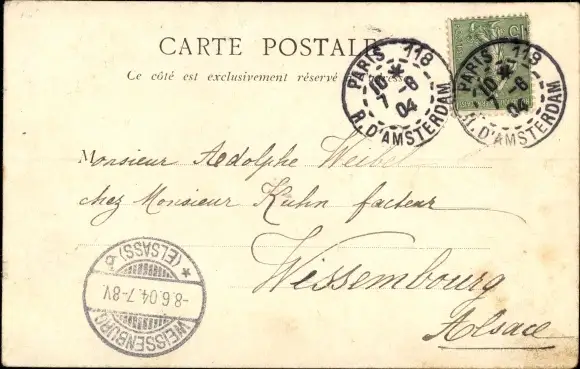 CARTE POSTALE
Ce côté est exclusivement réservé à l'adresse
PARIS 118
10 *
7 -6
04
R. D'AMSTERDAM
PARIS 118
10 *
7 -6
04
R. D'AMSTERDAM
15
Monsieur Adolphe Weibel
chez Monsieur Kuhn facteur
Wissembourg
Alsace
* (ELSASS) b
-8.6.04.7-8V.
WEISSENBURG